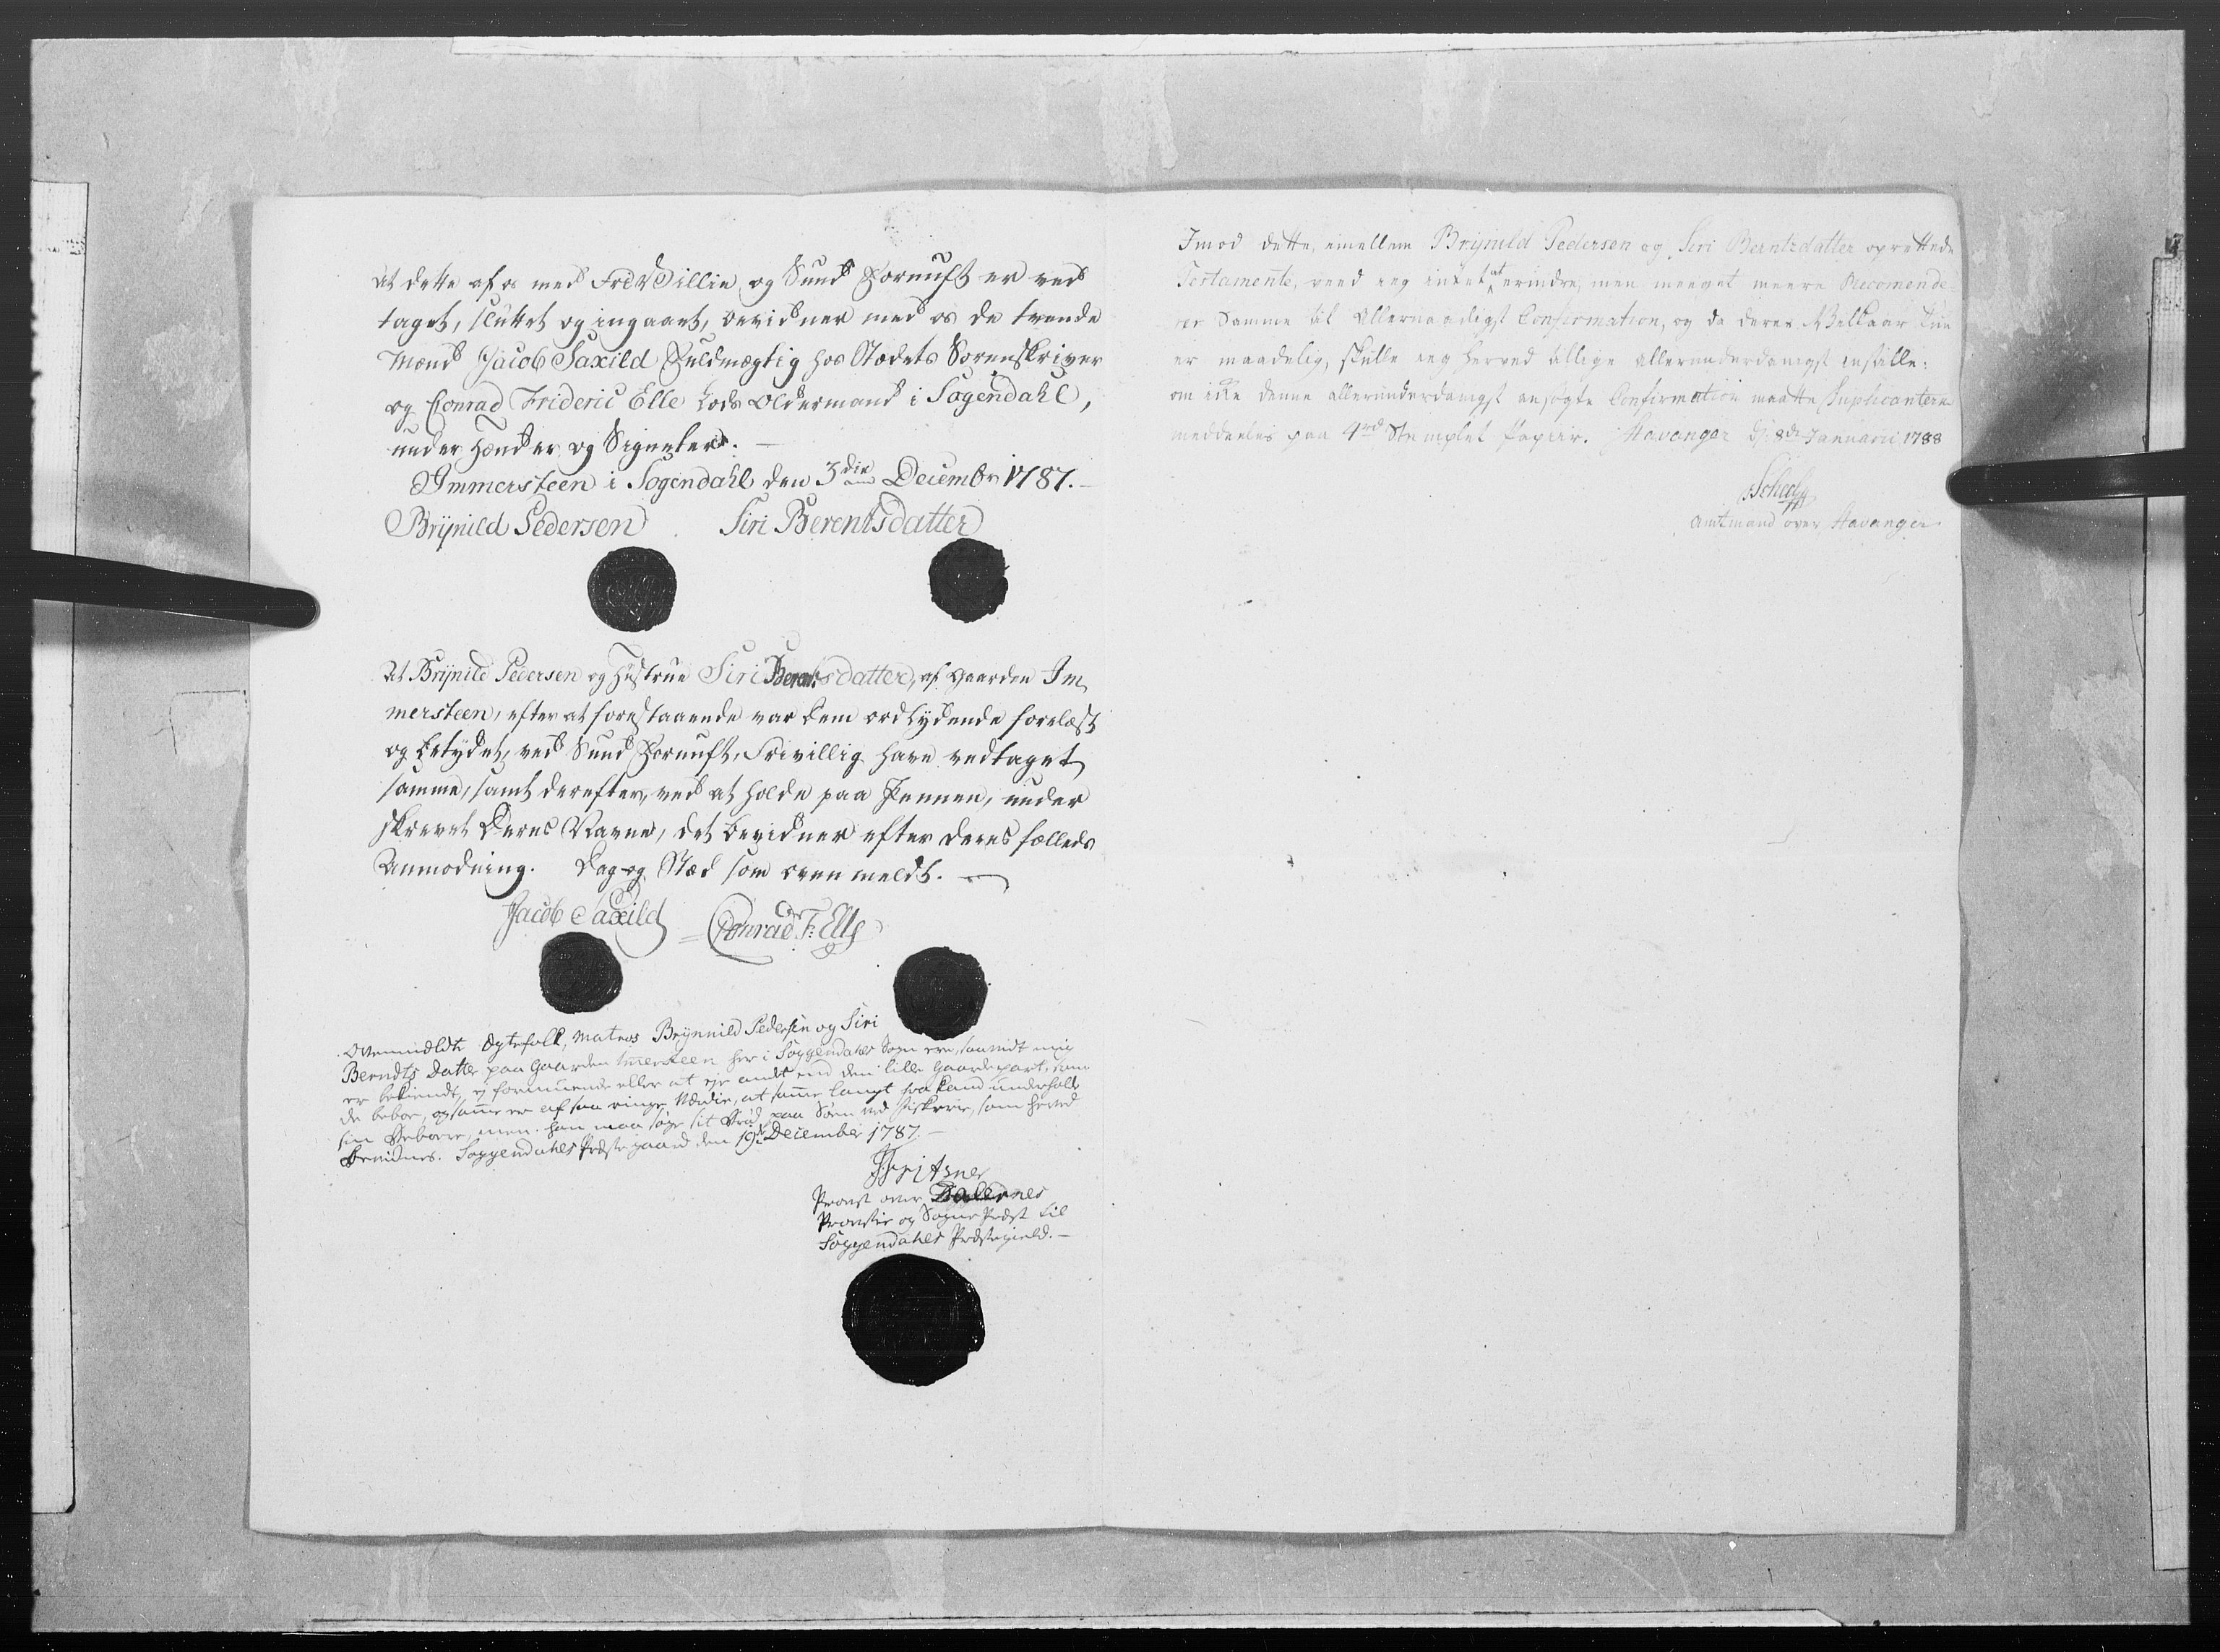 At dette af os med Frie Villie og Sund Fornuft er ved
taget, sluttet og ingaaet, bevidner med os de tvende
Mænd Jacob Saxild Fuldmægtig hos Stædets Sorenskriver
og Conrad Frideric Elle Lods Oldermand i Sogendahl,
under Hænder og Signeter. —
Immersteen i Sogendahl den 3die Decembr 1787. —
Brÿnild Pedersen Siri Berentsdatter
At Brÿnild Pedersen og Hustrue Siri Berentsdatter, af Gaarden Im
mersteen, efter at forestaaende var dem ordlydende forelæst
og betydet, ved Sund Fornuft, Frivillig have vedtaget
samme, samt derefter, ved at holde paa Pennen, under
skrevet deres Navne, det bevidner efter deres fælleds
Anmodning. Dag og Stæd som oven meldt. —
Jacob Saxild Conrad Fr: Elle
Ovenmeldte Egtefolk, Matros Brÿnnild Pedersen og Siri
Berndts Datter paa Gaarden Immersteen her i Soggendahls Sogn ere, saavidt mig
er bekiendt, ej formuende eller at eje andet end den lille Gaardepart, som
de beboe, og samme er af saa ringe Værdie, at samme langt fra kand underholde
sin Beboere, men han maa søge sit Brød paa Søen ved Fiskerie, som herved
bevidnes. Soggendahls Præstegaard den 19de December 1787. —
Provst over Dalernes
Provstie og Sogne Præst til
Soggendahls Præstegield. —
Imod dette, imellem Brÿnild Pedersen og Siri Berntzdatter oprettede
Testamente, veed jeg intet at erindre, men meeget meere Recomende
rer Samme til Allernaadigst Confirmation, og da deres Vilkaar kun
er maadelig, skulle jeg herved tillige allerunderdanigst indstille:
om icke denne allerunderdanigst ansøgte Confirmation maatte Suplicanterne
meddeeles paa 4rd Stemplet Papiir. Stavanger d: 8de Januarii 1788
Scheel
Amtmand over Stavanger